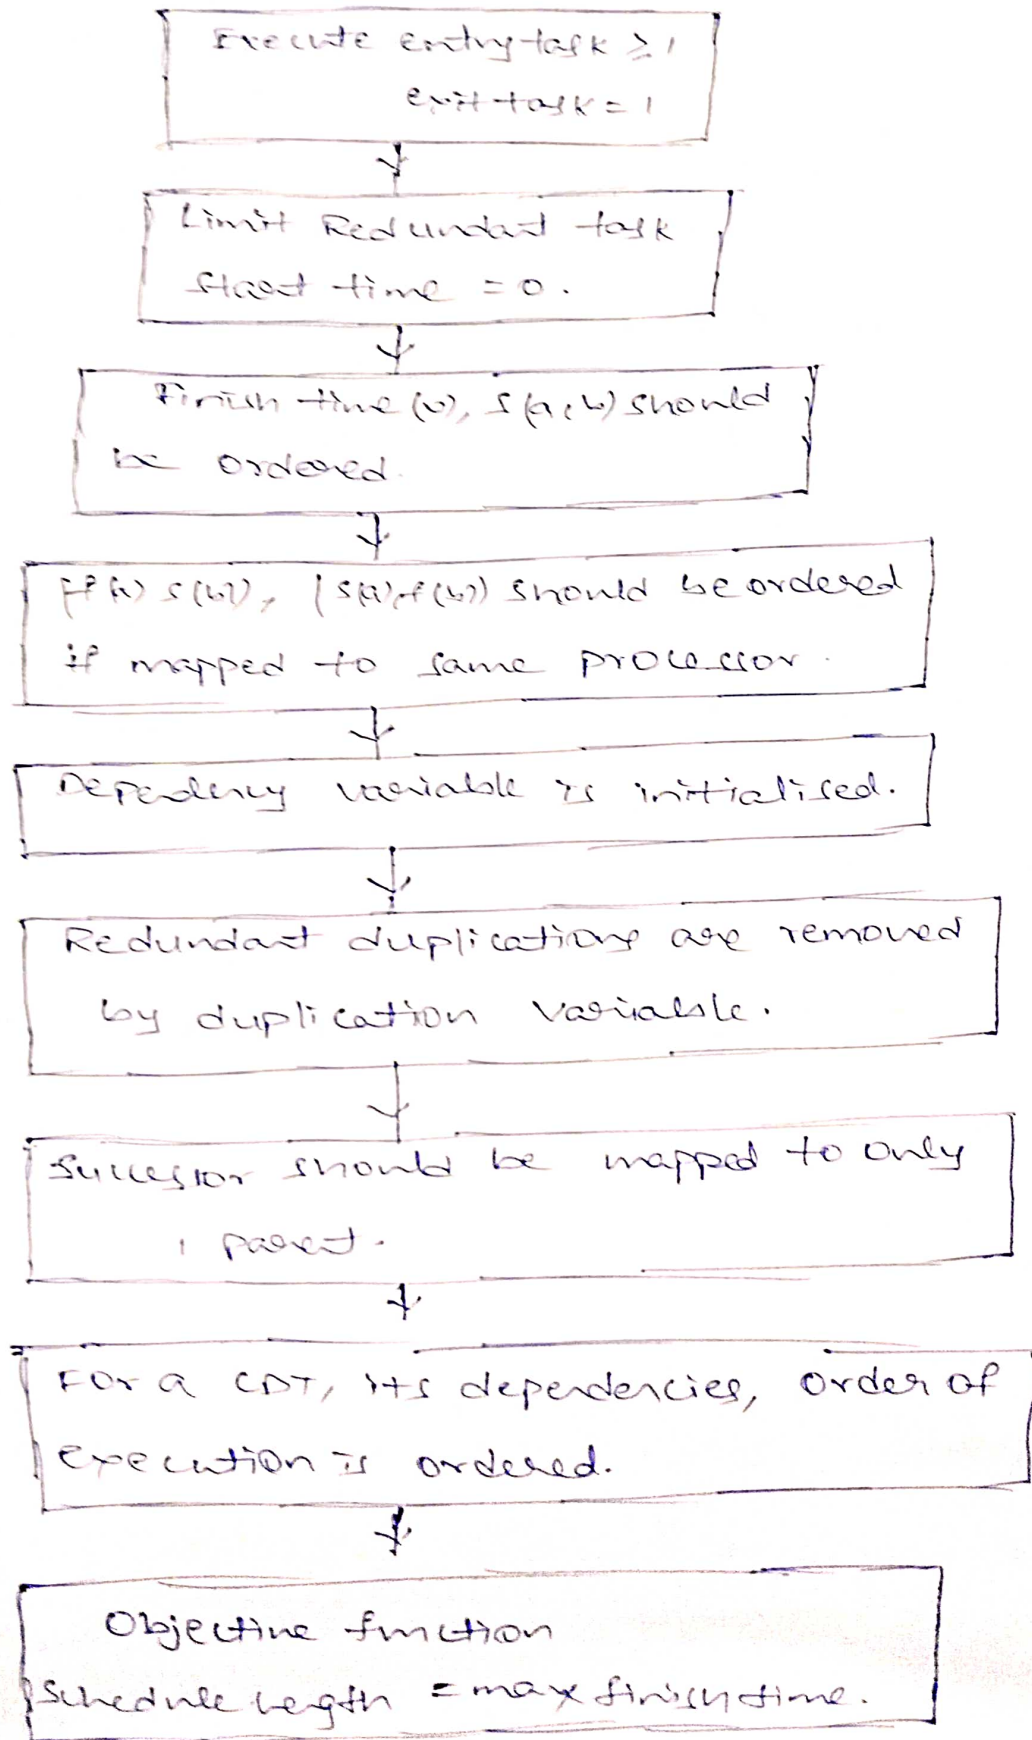 Execute entry task ≥ 1
exit task = 1
Limit Redundant task
start time = 0.
Finish time (b), s(a,b) should
be ordered.
s(b)), (s(a), f(b)) should be ordered
if mapped to same processor.
Dependency variable is initialised.
Redundant duplications are removed
by duplication variable.
Successor should be mapped to only
1 parent.
For a CDT, its dependencies, order of
execution is ordered.
Objective function
Schedule length = max finish time.